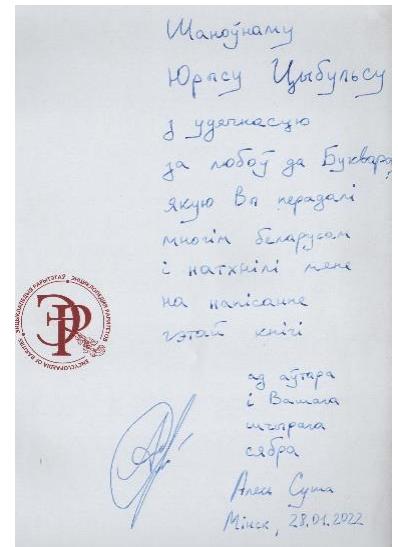 Шаноўнаму
Юрасу Цыбульсу
з удзячнасцю
за любоў да Буквара,
якую Вы перадалі
многім беларусам
і натхнілі мяне
на напісанне
гэтай кнігі
ад аўтара
і Вашага
шчырага
сябра
Алесь Суша
Мінск, 28.01.2022
ЭНЦЫКЛАПЕДЫЯ РАРЫТЭТАЎ • ЭНЦИКЛОПЕДИЯ РАРИТЕТОВ • ENCYCLOPAEDIA OF RARITIES
ЭР